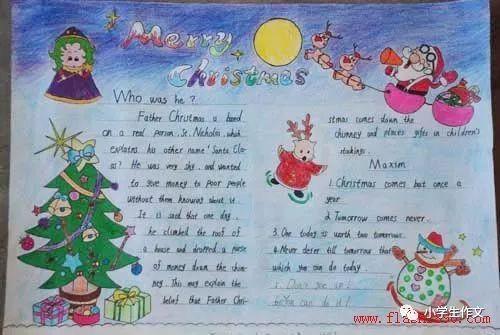 Merry
Christmas
Who was he?
Father Christmas is based
on a real person, St. Nicholas, which
explains his other name 'Santa Cla-
us? He was very shy, and wanted
to give money to poor people
without them knowing about it.
It is said that one day,
he climbed the roof of
a house and dropped a purse
of money down the chim-
ney. This may explain the
belief that Father Chri-
stmas comes down the
chimney and places gifts in children's
stokings.
Maxim
1. Christmas comes but once a
year
2. Tomorrow comes never.
3. One today is worth two tomorrows.
4. Never defer till tomorrow that
which you can do today.
1. Don't give up!
You can do it!
小学生作文